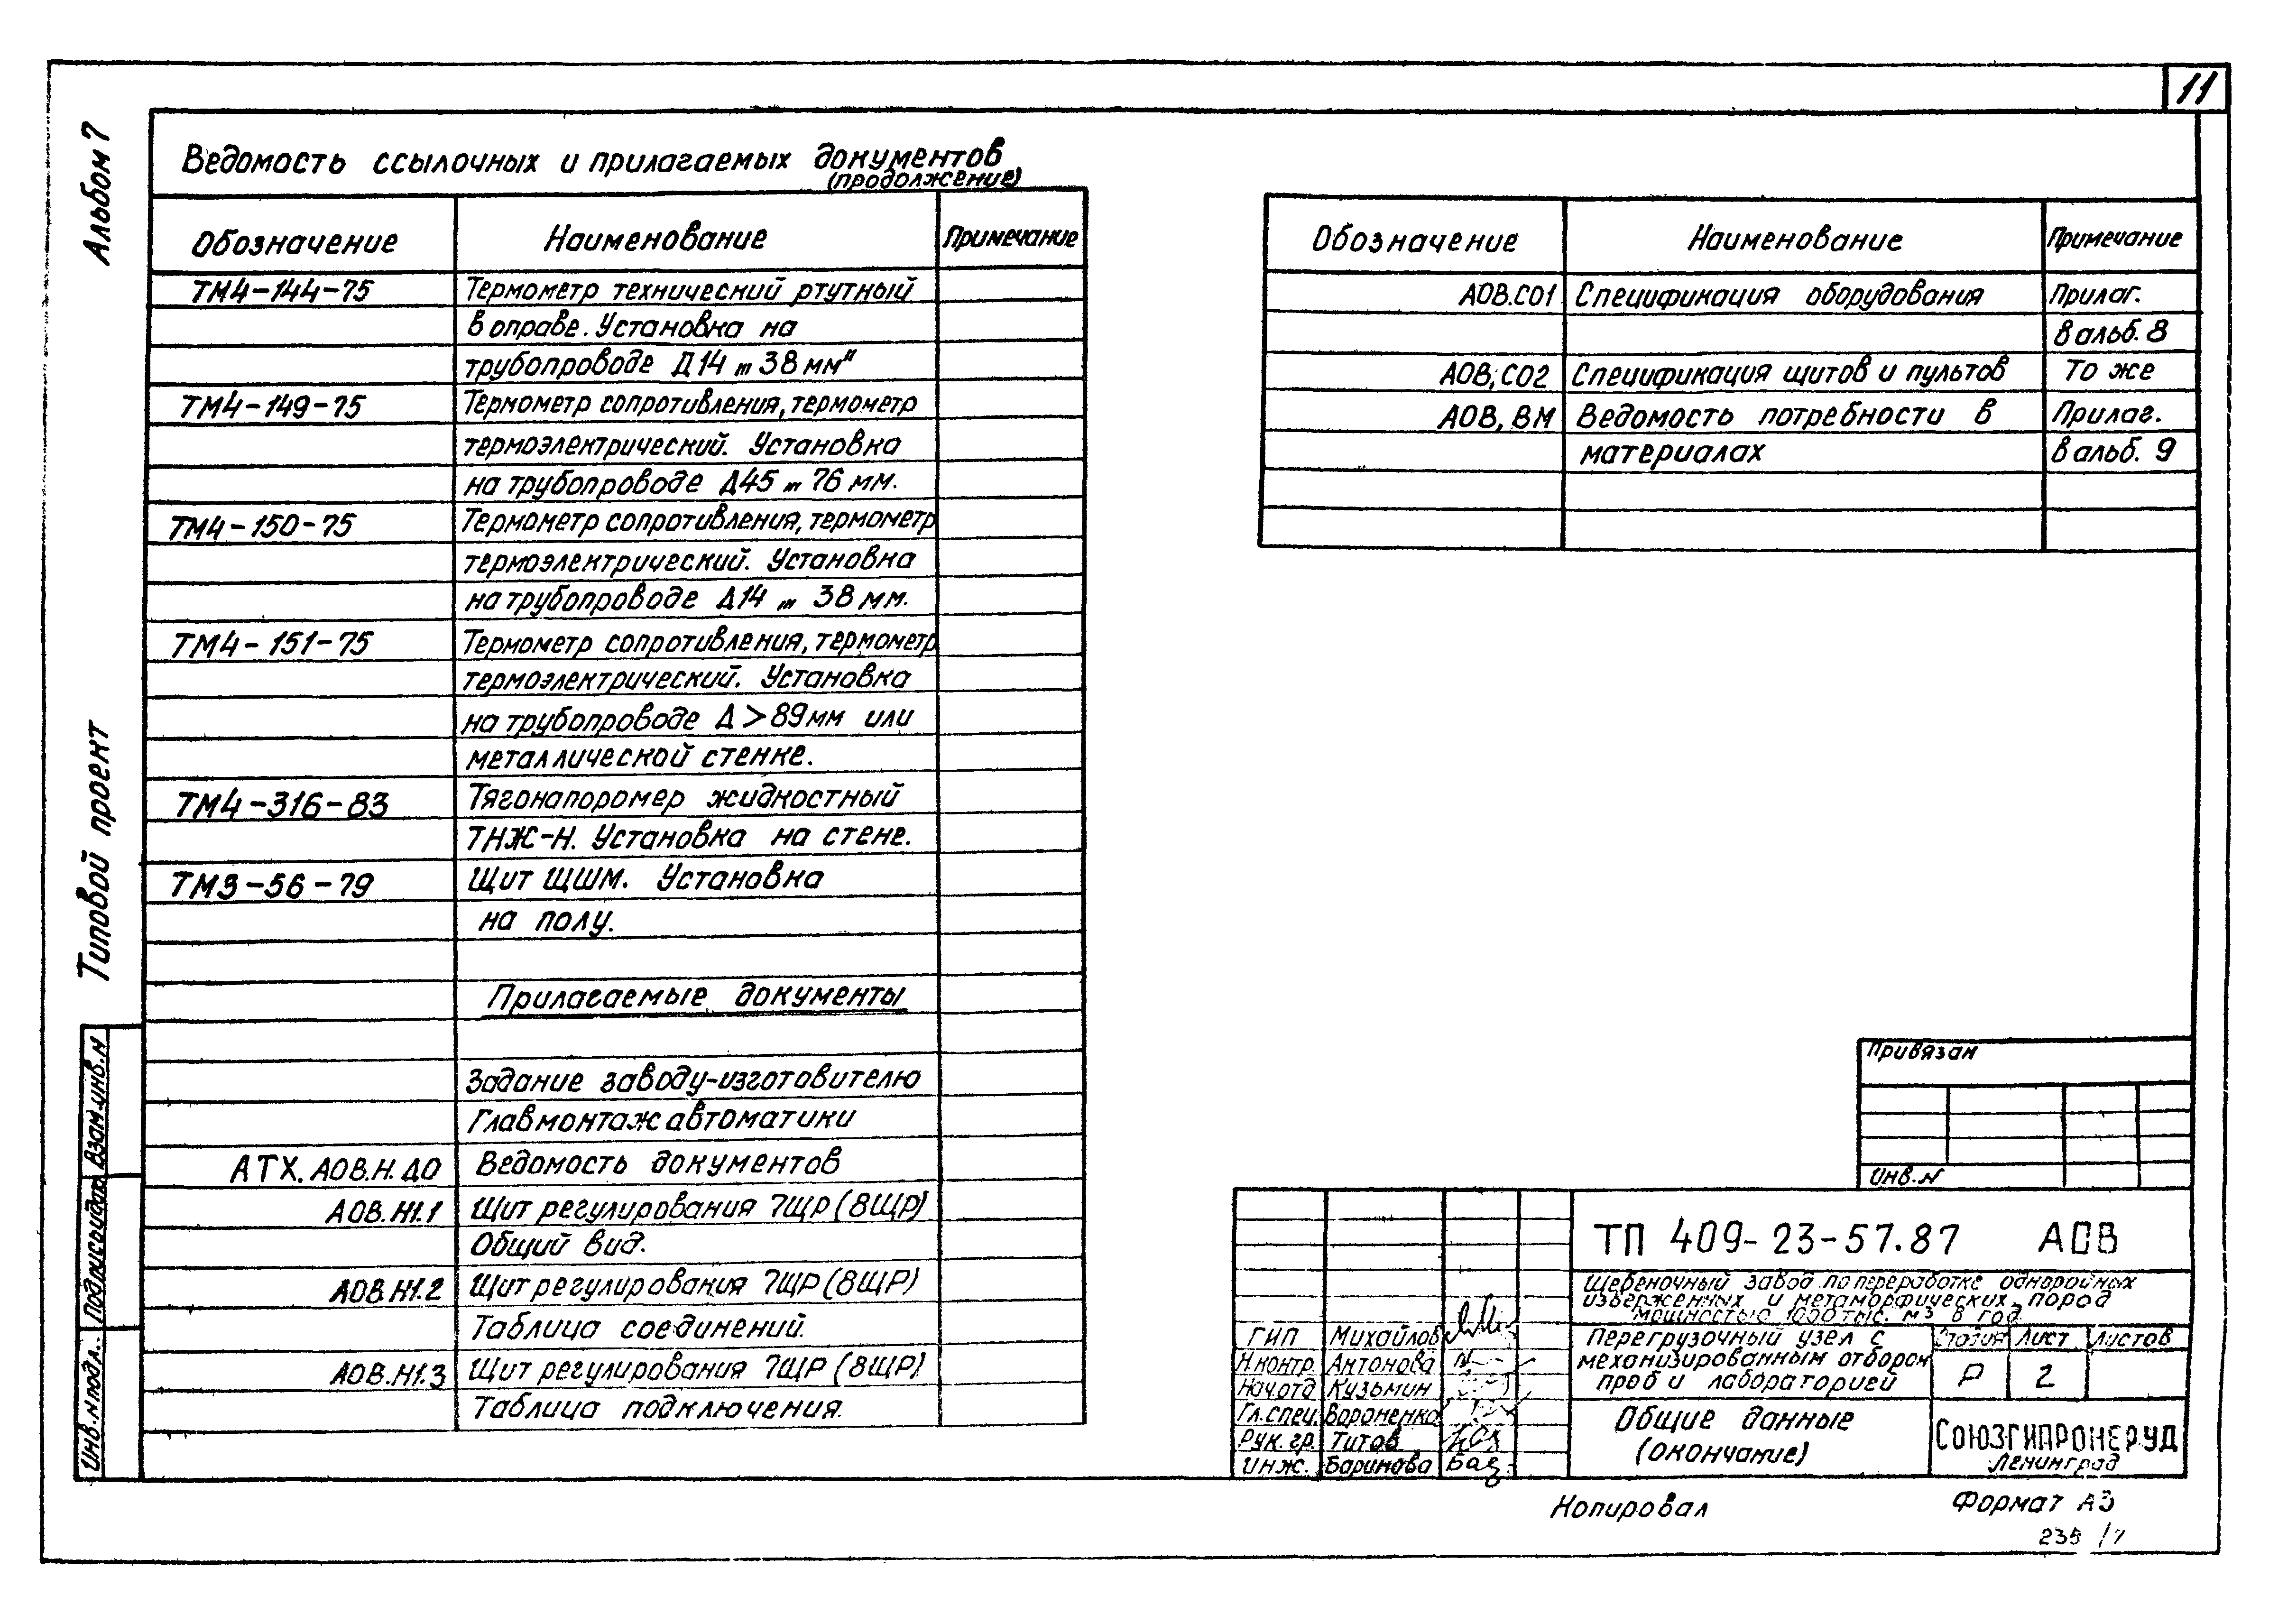 11
Альбом 7
Типовой проект
Ведомость ссылочных и прилагаемых документов
(продолжение)
Обозначение Наименование Примечание
ТМ4-144-75 Термометр технический ртутный
в оправе. Установка на
трубопроводе Д14 т 38 мм"
ТМ4-149-75 Термометр сопротивления, термометр
термоэлектрический. Установка
на трубопроводе Д45 т 76 мм.
ТМ4-150-75 Термометр сопротивления, термометр
термоэлектрический. Установка
на трубопроводе Д14 т 38 мм.
ТМ4-151-75 Термометр сопротивления, термометр
термоэлектрический. Установка
на трубопроводе Д>89мм или
металлической стенке.
ТМ4-316-83 Тягонапоромер жидкостный
ТНЖ-Н. Установка на стене.
ТМ3-56-79 Щит ЩШМ. Установка
на полу.
Прилагаемые документы
Задание заводу-изготовителю
Главмонтажавтоматики
АТХ. АОВ.Н.ДО Ведомость документов
АОВ.Н1.1 Щит регулирования 7ЩР (8ЩР)
Общий вид.
АОВ.Н1.2 Щит регулирования 7ЩР (8ЩР)
Таблица соединений.
АОВ.Н1.3 Щит регулирования 7ЩР (8ЩР)
Таблица подключения.
Обозначение Наименование Примечание
АОВ.СО1 Спецификация оборудования Прилаг.
в альб. 8
АОВ,СО2 Спецификация щитов и пультов То же
АОВ,ВМ Ведомость потребности в Прилаг.
материалах в альб. 9
Привязан
Инв.N
ТП 409-23-57.87 АОВ
Щебеночный завод по переработке однородных
изверженных и метаморфических пород
мощностью 1000 тыс. м3 в год
ГИП Михайлов
Н.контр. Антонова
Нач.отд Кузьмин
Гл.спец. Вороненко
Рук.гр. Титов
Инж. Баринова
Перегрузочный узел с
механизированным отбором
проб и лабораторией
Стадия Лист Листов
Р 2
Общие данные
(окончание)
СОЮЗГИПРОНЕРУД
Ленинград
Взам.инв.N
Подпись и дата
Инв.N подл.
Копировал Формат А3
235 /7